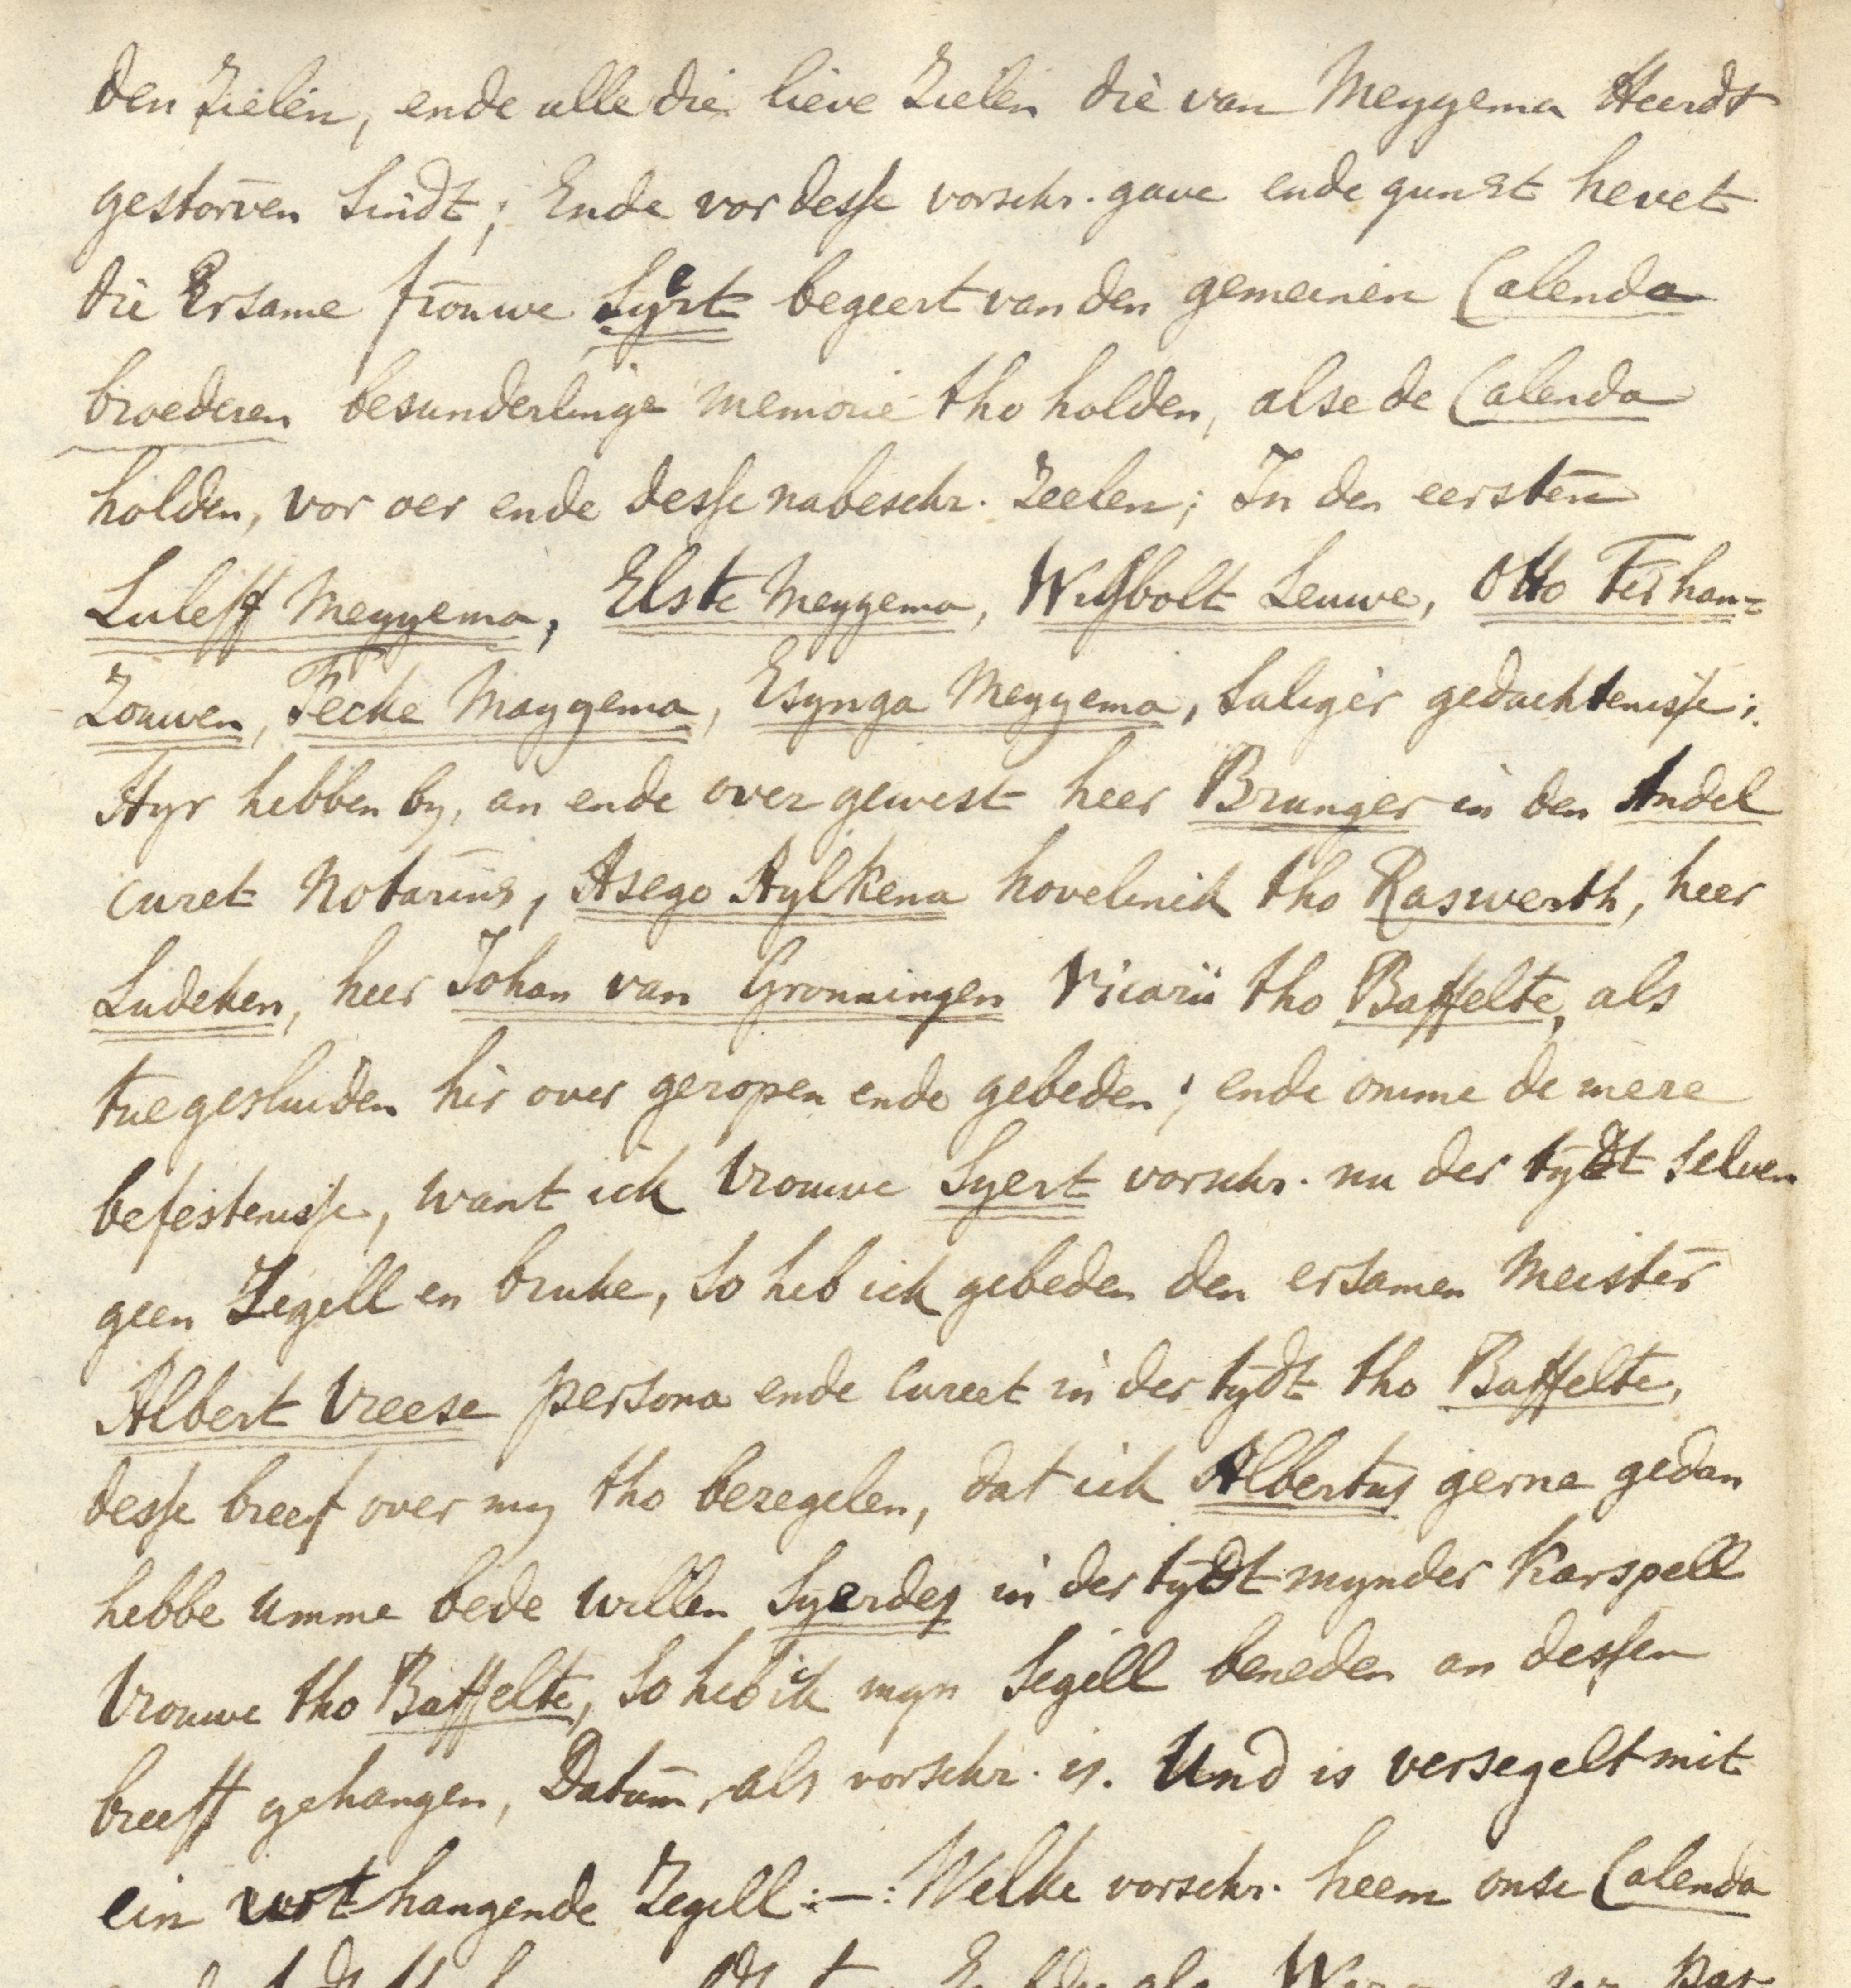 den zielen, ende alle die lieve Zielen die van Meygema Heerdt
gestorven sindt; Ende vor desse vorschr. gave ende gunst hevet
die Ersame frouwe Syert begeert van den gemeinen Calenda
broederen besunderlinge memorie tho holden, alse de Calenda
holden, vor oer ende desse nabeschr. Zeelen; In den eersten
Luleff Meygema, Elste Meygema, Wigbolt Leuwe, Otto Ter han=
Zouwen, Fecke Maygema, Esynga Meygema, saliger gedachtenisse;
Hyr hebben by, an ende over gewest heer Brunger in den Andel
curet Notarius, Asego Hylkena hovelinck tho Raswerth, heer
Ludeken, heer Johan van Gronningen Vicarii tho Baffelte, als
tuegesluiden hir over geropen ende gebeden; ende omme de mere
befestenisse, want ick Vrouwe Syert vorschr. nu der tydt selven
geen Zegell en bruke, so heb ick gebeden den ersamen Meister
Albert Vreese persona ende Cureet in der tydt tho Baffelte,
desse breef over my tho bezegelen, dat ick Albertus gerne gedan
hebbe umme bede willen Syerdes in der tydt mynder Karspell
Vrouwe tho Baffelte, So heb ick myn Segell beneden an dessen
breeff gehangen, Datum, als vorschr. is. Und is versegelt mit
ein uut hangende Zegell:—: Welke vorschr. heem onse Calenda